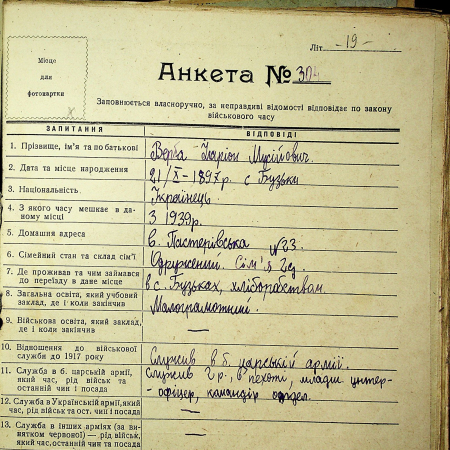 Літ. -19-
Місце
для
фотокартки
Анкета № 304
Заповнюється власноручно, за неправдиві відомості відповідає по закону
військового часу
ЗАПИТАННЯ ВІДПОВІДІ
1. Прізвище, ім'я та по батькові Верба Іларіон Мусійович.
2. Дата та місце народження 21/X-1897р. с Бузьки
3. Національність Українець
4. З якого часу мешкає в да-
ному місці З 1939р.
5. Домашня адреса в. Пастерівська №23.
6. Сімейний стан та склад сім'ї Одружений. Сім'я 2од.
7. Де проживав та чим займався
до переїзду в дане місце в с. Бузьках, хліборобством
8. Загальна освіта, який учбовий
заклад, де і коли закінчив Малограмотний.
9. Військова освіта, який заклад,
де і коли закінчив —
10. Відношення до військової
служби до 1917 року Служив в б. царській армії.
11. Служба в б. царській армії,
який час, рід військ та
останній чин і посада Служив 2р., в пехоті, младш. унтер-
офіцер, командір отдел.
12. Служба в Українській армії, який
час, рід війська та ост. чин і посада —
13. Служба в інших арміях (за ви-
нятком червоної) — рід військ,
який час, останній чин і посада —